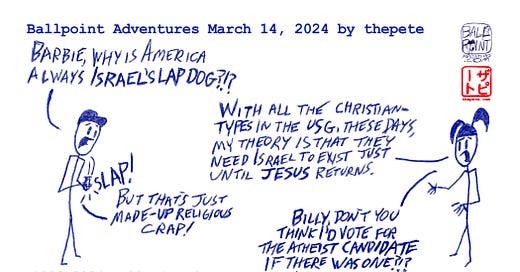 Ballpoint Adventures March 14, 2024 by thepete
BALL
POINT
BARBIE, WHY IS AMERICA
ALWAYS ISRAEL'S LAP DOG?!?
ザピ
ート
thepete.com
WITH ALL THE CHRISTIAN-
TYPES IN THE USG, THESE DAYS,
MY THEORY IS THAT THEY
NEED ISRAEL TO EXIST JUST
UNTIL JESUS RETURNS.
SLAP!
BUT THAT'S JUST
MADE-UP RELIGIOUS
CRAP!
BILLY, DON'T YOU
THINK I'D VOTE FOR
THE ATHEIST CANDIDATE
IF THERE WAS ONE?!?